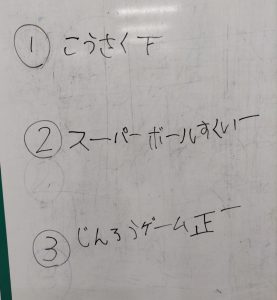 ① こうさく 下
② スーパーボールすくい 一
③ じんろうゲーム 正 一